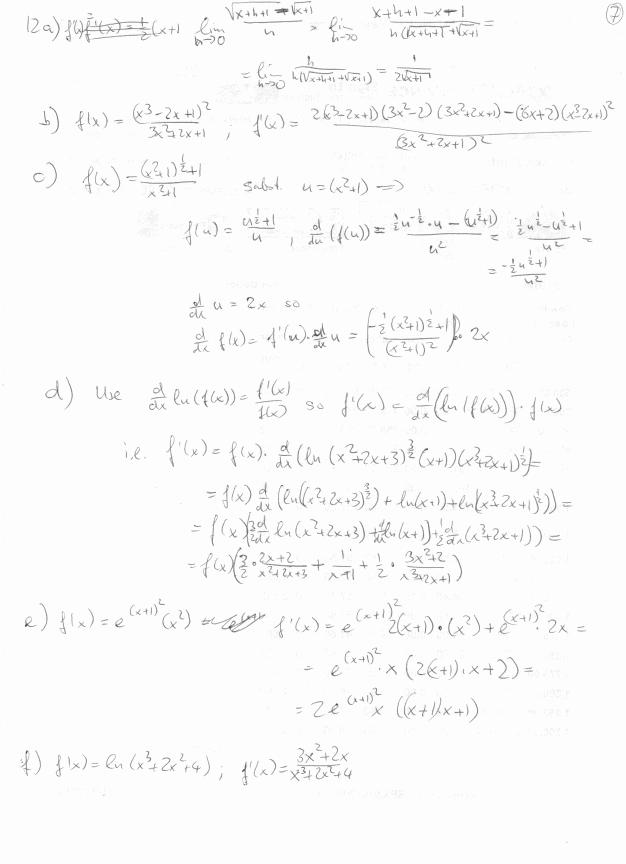 ⑦
12a) f(x) = lim_{h→0} (√(x+h+1) - √(x+1))/h = lim_{h→0} (x+h+1-x-1)/(h(√(x+h+1)+√(x+1))) =
= lim_{h→0} h/(h(√(x+h+1)+√(x+1))) = 1/(2√(x+1))
b) f(x) = (x³-2x+1)²/(3x²+2x+1) ; f'(x) = (2(x³-2x+1)(3x²-2)(3x²+2x+1) - (6x+2)(x³-2x+1)²)/(3x²+2x+1)²
c) f(x) = ((x²+1)^{1/2}+1)/(x²+1) subst. u = (x²+1) =>
f(u) = (u^{1/2}+1)/u , d/du (f(u)) = (½u^{-1/2}·u - (u^{1/2}+1))/u² = (½u^{1/2} - u^{1/2}+1)/u² =
= (-½u^{1/2}+1)/u²
d/dx u = 2x so
d/dx f(x) = f'(u)·d/dx u = ((-½(x²+1)^{1/2}+1)/(x²+1)²)· 2x
d) Use d/dx ln(f(x)) = f'(x)/f(x) so f'(x) = d/dx (ln(f(x)))· f(x)
i.e. f'(x) = f(x)· d/dx (ln (x²+2x+3)^{3/2}(x+1)(x³+2x+1)^{1/2}) =
= f(x) d/dx (ln((x²+2x+3)^{3/2}) + ln(x+1) + ln(x³+2x+1)^{1/2})) =
= f(x)(3/2 d/dx ln(x²+2x+3) + d/dx ln(x+1)) + ½ d/dx (x³+2x+1)) =
= f(x)(3/2 · (2x+2)/(x²+2x+3) + 1/(x+1) + 1/2 · (3x²+2)/(x³+2x+1))
e) f(x) = e^{(x+1)²}(x²) f'(x) = e^{(x+1)²} 2(x+1)·(x²) + e^{(x+1)²}· 2x =
= e^{(x+1)²}· x (2(x+1)·x+2) =
= 2e^{(x+1)²} x ((x+1)x+1)
f) f(x) = ln(x³+2x²+4) ; f'(x) = (3x²+2x)/(x³+2x²+4)